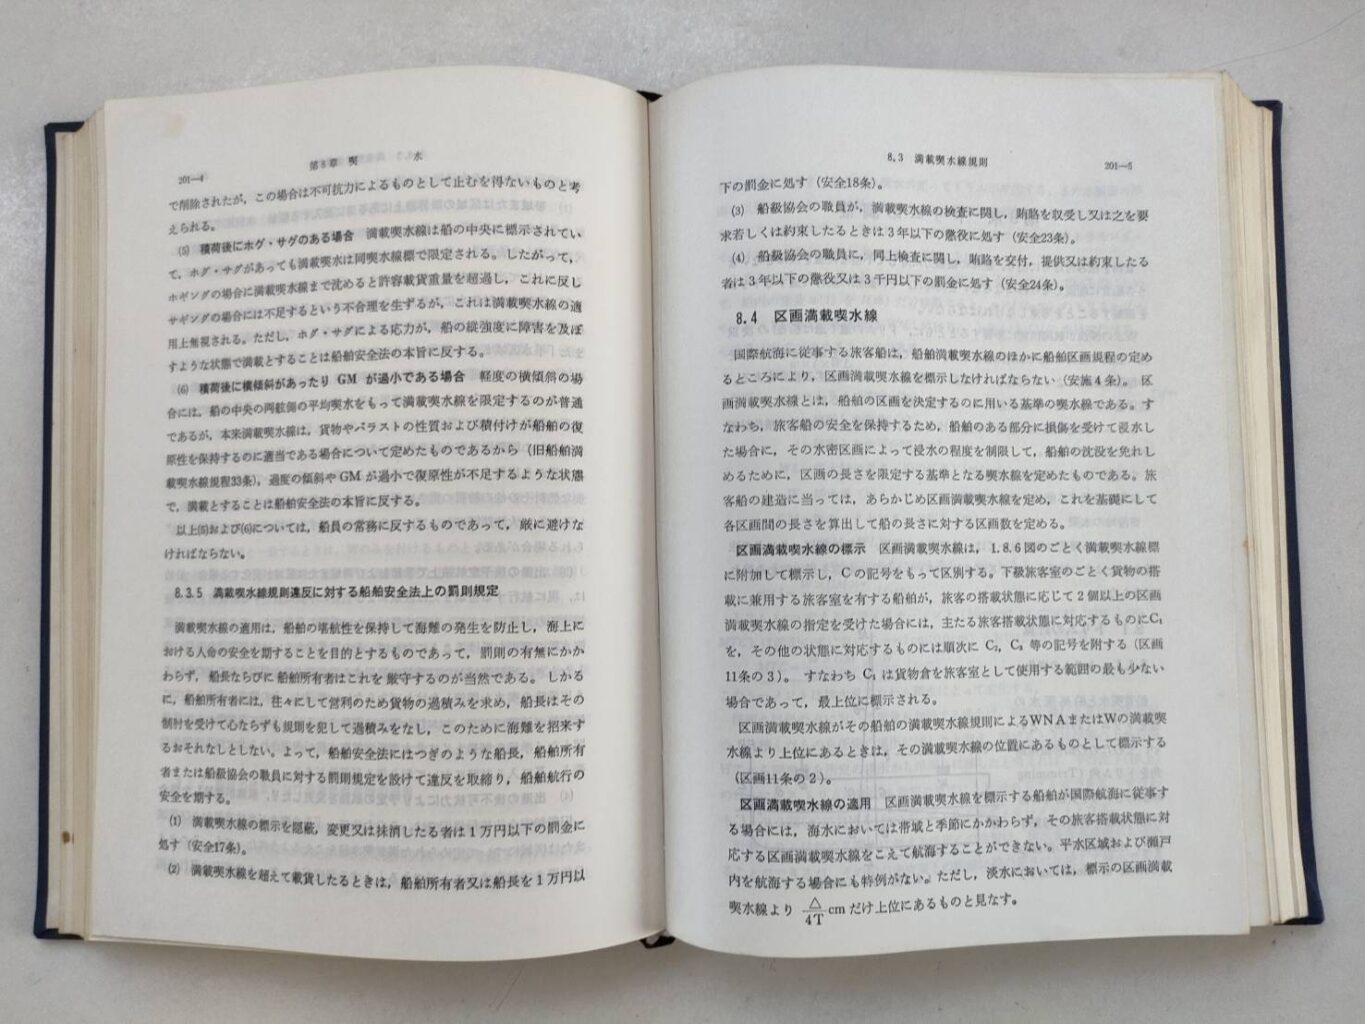 201—4
第8章 喫 水
で削除されたが，この場合は不可抗力によるものとして止むを得ないものと考
えられる。
(5) 積荷後にホグ・サグのある場合 満載喫水線は船の中央に標示されてい
て，ホグ・サグがあっても満載喫水は同喫水線標で限定される。したがって，
ホギングの場合に満載喫水線まで沈めると許容載貨重量を超過し，これに反し
サギングの場合には不足するという不合理を生ずるが，これは満載喫水線の適
用上無視される。ただし，ホグ・サグによる応力が，船の縦強度に障害を及ぼ
すような状態で満載とすることは船舶安全法の本旨に反する。
(6) 積荷後に横傾斜があったり GM が過小である場合 軽度の横傾斜の場
合には，船の中央の両舷側の平均喫水をもって満載喫水線を限定するのが普通
であるが，本来満載喫水線は，貨物やバラストの性質および積付けが船舶の復
原性を保持するのに適当である場合について定めたものであるから（旧船舶満
載喫水線規程33条），過度の傾斜や GM が過小で復原性が不足するような状態
で，満載とすることは船舶安全法の本旨に反する。
以上(5)および(6)については，船員の常務に反するものであって，厳に避けな
ければならない。
8.3.5 満載喫水線規則違反に対する船舶安全法上の罰則規定
満載喫水線の適用は，船舶の堪航性を保持して海難の発生を防止し，海上に
おける人命の安全を期することを目的とするものであって，罰則の有無にかか
わらず，船長ならびに船舶所有者はこれを厳守するのが当然である。しかる
に，船舶所有者には，往々にして営利のため貨物の過積みを求め，船長はその
制肘を受けて心ならずも規則を犯して過積みをなし，このために海難を招来す
るおそれなしとしない。よって，船舶安全法にはつぎのような船長，船舶所有
者または船級協会の職員に対する罰則規定を設けて違反を取締り，船舶航行の
安全を期する。
(1) 満載喫水線の標示を隠蔽，変更又は抹消したる者は１万円以下の罰金に
処す（安全17条）。
(2) 満載喫水線を超えて載貨したるときは，船舶所有者又は船長を１万円以
8.3 満載喫水線規則
201—5
下の罰金に処す（安全18条）。
(3) 船級協会の職員が，満載喫水線の検査に関し，賄賂を収受し又は之を要
求若しくは約束したるときは３年以下の懲役に処す（安全23条）。
(4) 船級協会の職員に，同上検査に関し，賄賂を交付，提供又は約束したる
者は３年以下の懲役又は３千円以下の罰金に処す（安全24条）。
8.4 区画満載喫水線
国際航海に従事する旅客船は，船舶満載喫水線のほかに船舶区画規程の定め
るところにより，区画満載喫水線を標示しなければならない（安施４条）。区
画満載喫水線とは，船舶の区画を決定するのに用いる基準の喫水線である。す
なわち，旅客船の安全を保持するため，船舶のある部分に損傷を受けて浸水し
た場合に，その水密区画によって浸水の程度を制限して，船舶の沈没を免れし
めるために，区画の長さを限定する基準となる喫水線を定めたものである。旅
客船の建造に当っては，あらかじめ区画満載喫水線を定め，これを基礎にして
各区画間の長さを算出して船の長さに対する区画数を定める。
区画満載喫水線の標示 区画満載喫水線は，1.8.6図のごとく満載喫水線標
に附加して標示し，Ｃの記号をもって区別する。下級旅客室のごとく貨物の搭
載に兼用する旅客室を有する船舶が，旅客の搭載状態に応じて２個以上の区画
満載喫水線の指定を受けた場合には，主たる旅客搭載状態に対応するものにC₁
を，その他の状態に対応するものには順次に C₂，C₃ 等の記号を附する（区画
11条の３）。すなわち C₁ は貨物倉を旅客室として使用する範囲の最も少ない
場合であって，最上位に標示される。
区画満載喫水線がその船舶の満載喫水線規則によるWNAまたはWの満載喫
水線より上位にあるときは，その満載喫水線の位置にあるものとして標示する
（区画11条の２）。
区画満載喫水線の適用 区画満載喫水線を標示する船舶が国際航海に従事す
る場合には，海水においては帯域と季節にかかわらず，その旅客搭載状態に対
応する区画満載喫水線をこえて航海することができない。平水区域および瀬戸
内を航海する場合にも特例がない。ただし，淡水においては，標示の区画満載
喫水線より △/4T cm だけ上位にあるものと見なす。